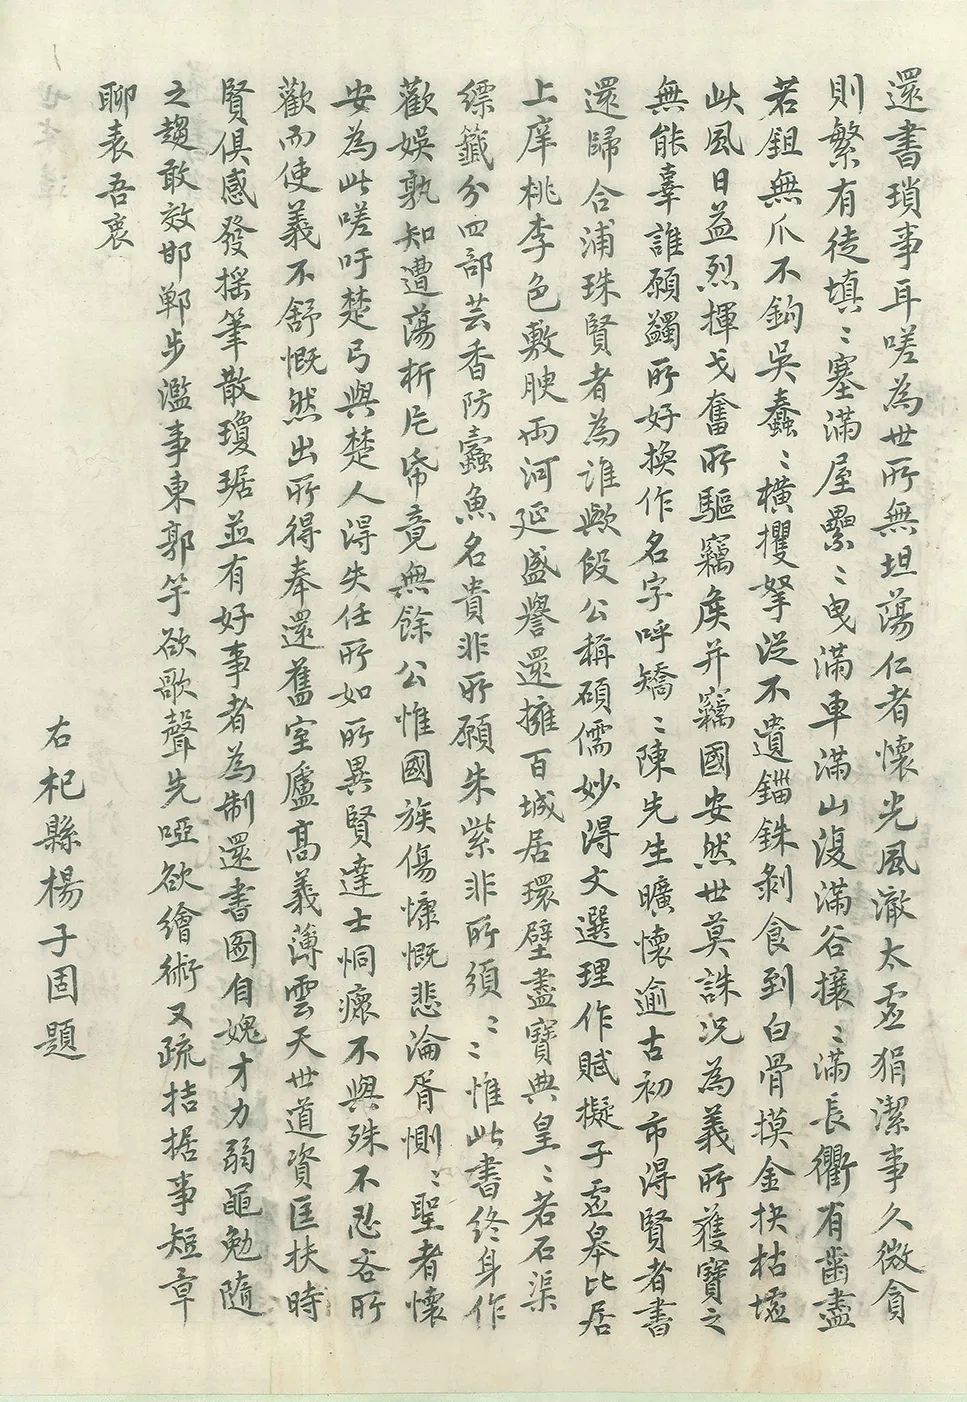 還書瑣事耳嗟為世所無坦蕩仁者懷光風澈太虛狷潔事久微貪
則繁有徒填〻塞滿屋纍〻曳滿車滿山復滿谷攘〻滿長衢有齒盡
若鉏無爪不鈎吳蠢〻橫攫拏從不遺錙銖剝食到白骨摸金抉枯墟
此風日益烈揮戈奮所驅竊矦并竊國安然世莫誅况為義所獲寶之
無能辜誰願蠲所好換作名字呼矯〻陳先生曠懷逾古初市得賢者書
還歸合浦珠賢者為誰歟段公稱碩儒妙得文選理作賦擬子虛皋比居
上庠桃李色敷腴兩河延盛譽還擁百城居環壁盡寶典皇〻若石渠
縹籤分四部芸香防蠹魚名貴非所願朱紫非所須〻〻惟此書終身作
歡娛孰知遭蕩析片帋竟無餘公惟國族傷慷慨悲淪胥惻〻聖者懷
安為此嗟吁楚弓與楚人得失任所如所異賢達士恫瘝不與殊不忍吝所
歡而使義不舒慨然出所得奉還舊室廬高義薄雲天世道資匡扶時
賢俱感發搖筆散瓊琚並有好事者為制還書图自媿才力弱黽勉隨
之趨敢效邯鄲步濫事東郭竽欲歌聲先啞欲繪術又疏拮据事短章
聊表吾衷
右杞縣楊子固題